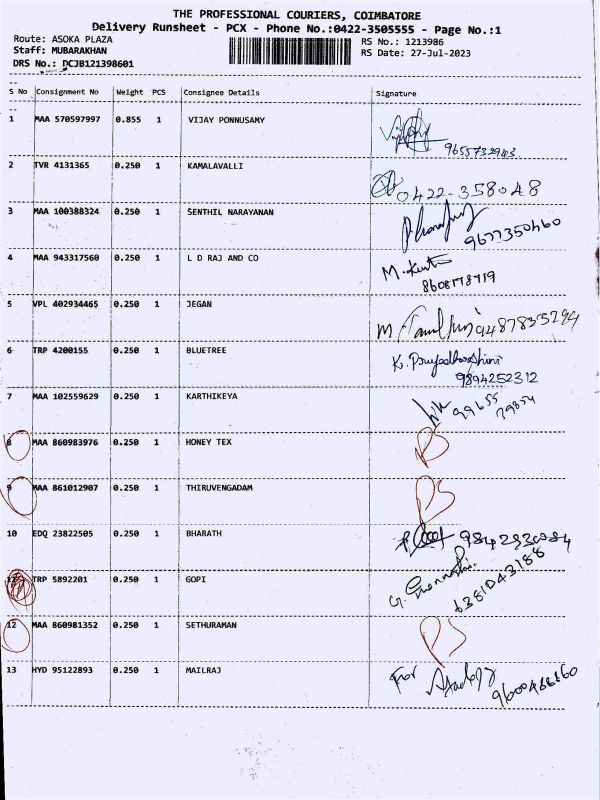 THE PROFESSIONAL COURIERS, COIMBATORE
Delivery Runsheet - PCX - Phone No.:0422-3505555 - Page No.:1
Route: ASOKA PLAZA RS No.: 1213986
Staff: MUBARAKHAN RS Date: 27-Jul-2023
DRS No.: DCJB121398601
S No Consignment No Weight PCS Consignee Details Signature
1 MAA 570597997 0.855 1 VIJAY PONNUSAMY
2 TVR 4131365 0.250 1 KAMALAVALLI 0422-358048
3 MAA 100388324 0.250 1 SENTHIL NARAYANAN 9677350460
4 MAA 943317560 0.250 1 L D RAJ AND CO M.
5 VPL 402934465 0.250 1 JEGAN M.
6 TRP 4200155 0.250 1 BLUETREE K. 9894252312
7 MAA 102559629 0.250 1 KARTHIKEYA
8 MAA 860983976 0.250 1 HONEY TEX
9 MAA 861012907 0.250 1 THIRUVENGADAM
10 EDQ 23822505 0.250 1 BHARATH
11 TRP 5892201 0.250 1 GOPI G. 6381043188
12 MAA 860981352 0.250 1 SETHURAMAN
13 HYD 95122893 0.250 1 MAILRAJ For